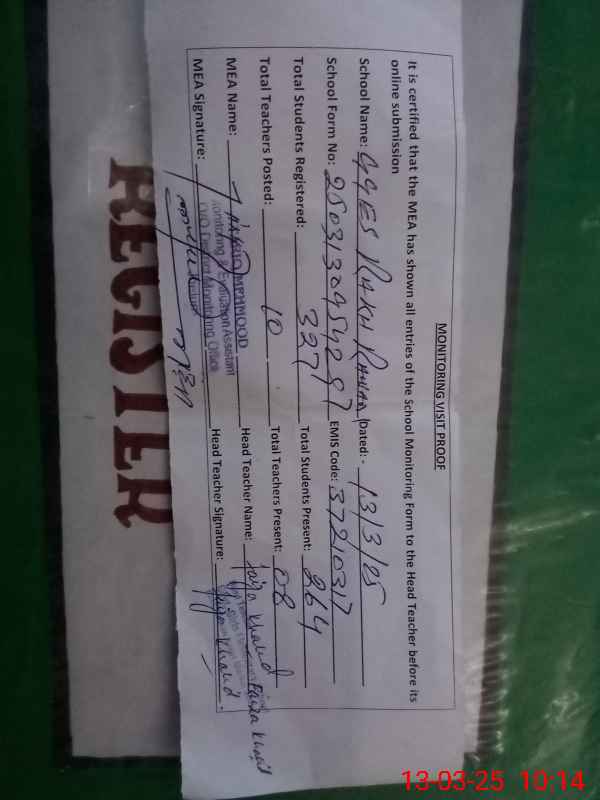 MONITORING VISIT PROOF
It is certified that the MEA has shown all entries of the School Monitoring Form to the Head Teacher before its
online submission
School Name: GGES RAKH Dated:- 13/3/25
School Form No: EMIS Code: 37210317
Total Students Registered: 327 Total Students Present: 264
Total Teachers Posted: 10 Total Teachers Present: 08
MEA Name: MEHMOOD Head Teacher Name: Faiza Khalid
Monitoring & Evaluation Assistant
O/O District Monitoring Office
MEA Signature: Head Teacher Signature: Faiza Khalid
REGISTER
13-03-25 10:14